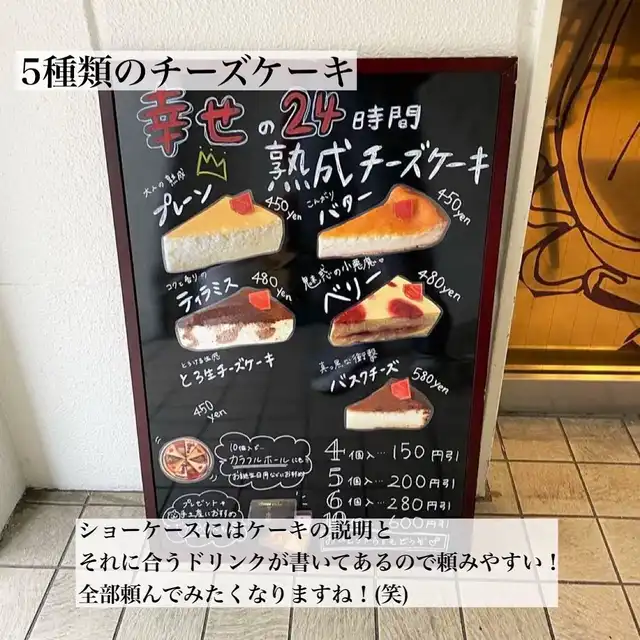 5種類のチーズケーキ
幸せの24時間
熟成チーズケーキ
大人の熟成
プレーン
450yen
こんがり
バター
450yen
コクと香りの
ティラミス
480yen
魅惑の小悪魔
ベリー
480yen
とろける生感
とろ生チーズケーキ
450yen
真っ黒な衝撃
バスクチーズ
580yen
10個入り…
カラフルホールにも
お誕生日用などにおすすめ
4個入…150円引
5個入…200円引
6個入…280円引
10 600円引
プレゼントや
手土産におすすめ
ショーケースにはケーキの説明と
それに合うドリンクが書いてあるので頼みやすい！
全部頼んでみたくなりますね！(笑)